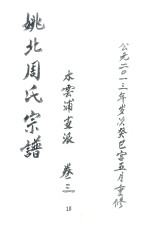 公元二〇一三年岁次癸巳宫五月重修
水云浦支派 卷三
姚北周氏宗谱
18